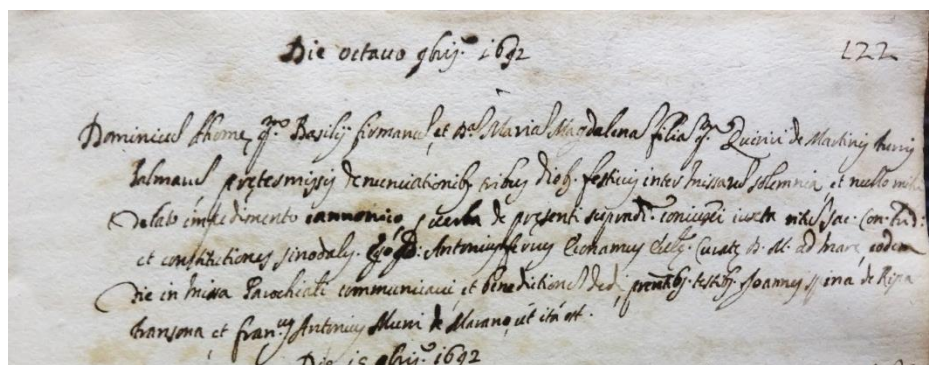 Die octavo 9bris. 1692 122
Dominicus Thome qm. Basilij firmanus, et Da. Maria Magdalena filia qm. Quirici de Martinis turris
Palmaris pretermissis denunciationib; tribus dieb. festivis inter missarum solemnia et nullo mihi
delato impedimento cannonico, verba de presenti supradi. coniuxi iuxta ritus sac. Con. Trid:
et constitutiones sinodaly. Ego D. Antonius Curatus B. M. ad mare, eodem
die in missa Parochiali communicavi et benedictione dedi, prentibs. testibs. Joannes spina de Ripa
transona et Fran.cus Antonius Muri de Marano, ut ita est.
Die 15 9bris. 1692